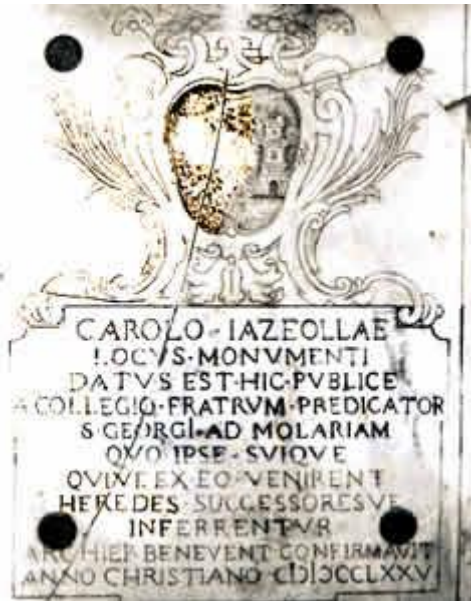 CAROLO · IAZEOLLAE
LOCVS · MONVMENTI
DATVS EST · HIC · PVBLICE
A COLLEGIO · FRATRVM · PREDICATOR
S · GEORGI · AD MOLARIAM
QVO IPSE · SVIQVE
QVIVE EX EO · VENIRENT
HEREDES · SUCCESSORESVE
INFERRENTVR
ARCHIEP BENEVENT CONFIRMAVIT
ANNO CHRISTIANO CIƆIƆCCLXXV